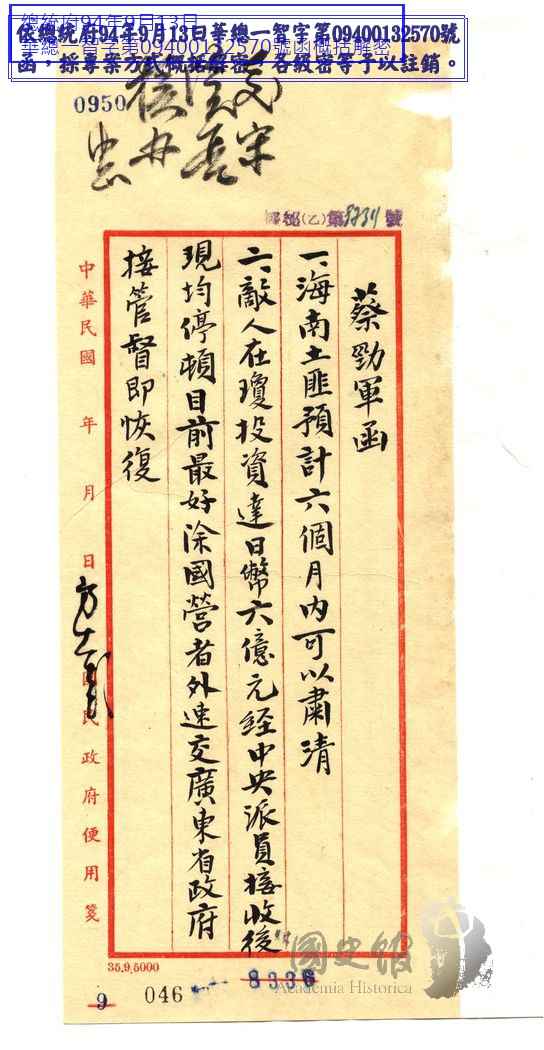 總統府94年9月13日
華總一智字第09400132570號函概括解密
依總統府94年9月13日華總一智字第09400132570號
函，採專案方式概括解密，各級密等予以註銷。
0950
(乙)第8234號
蔡勁軍函
一、海南土匪預計六個月內可以肅清
二、敵人在瓊投資達日幣六億元經中央派員接收後
現均停頓目前最好除國營者外速交廣東省政府
接管督即恢復
中華民國 年 月 日
國民政府便用箋
35,9,5000
9 046 8336
國史館
Academia Historica